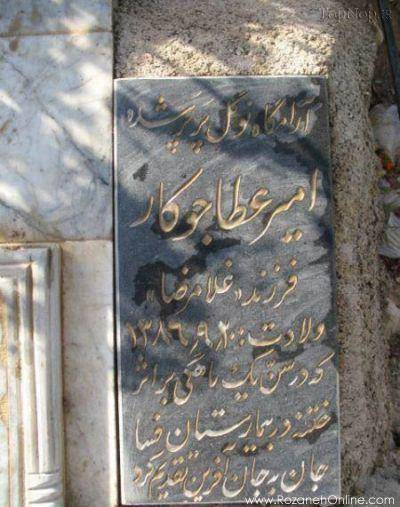 TopNop.ir
آرامگاه نوگل پرپر شده
امیر عطا جوکار
فرزند «غلامرضا»
ولادت: ۱۳۸۶٫۹٫۲۰
که در سن یک ماهگی بر اثر
ختنه در بیمارستان فسا
جان به جان آفرین تقدیم کرد
www.RozanehOnline.com